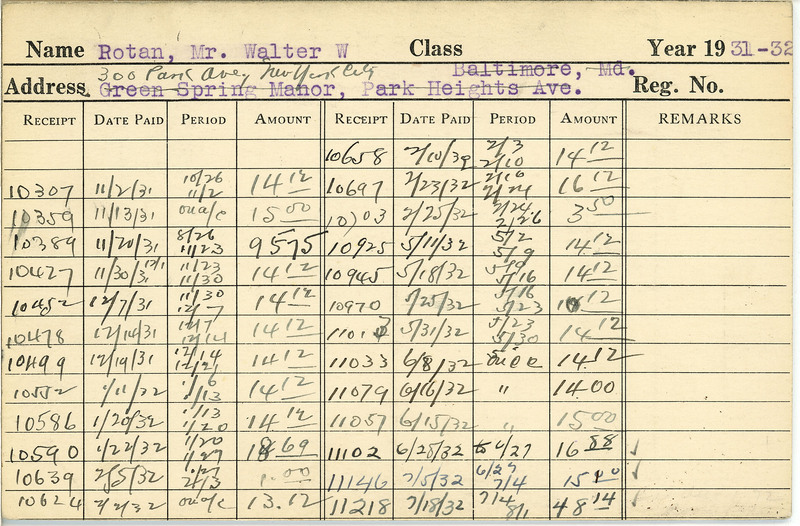 Name Rotan, Mr. Walter W Class Year 19 31-32
300 Park Ave, New York City Baltimore, Md.
Address Green Spring Manor, Park Heights Ave. Reg. No.
RECEIPT DATE PAID PERIOD AMOUNT RECEIPT DATE PAID PERIOD AMOUNT REMARKS
10658 2/10/32 2/3 2/10 14 12
10307 11/2/31 10/26 11/2 14 12 10697 2/23/32 2/16 14 12
10359 11/13/31 on a/c 15 00 10703 2/25/32 2/24 2/26 3 50
10389 11/20/31 8/26 11/23 95 75 10925 5/11/32 5/2 5/9 14 12
10427 11/30/31 11/23 11/30 14 12 10945 5/18/32 5/9 5/16 14 12
10452 12/7/31 11/30 12/7 14 12 10970 5/25/32 5/16 5/23 12
10478 12/14/31 12/7 12/14 14 12 5/31/32 5/23 5/30 14 12
10499 12/19/31 12/14 12/21 14 12 11033 6/8/32 14 12
10552 1/11/32 1/6 1/13 14 12 11079 6/16/32 " 14 00
10586 1/20/32 1/13 1/20 14 12 11057 6/15/32 " 15 00
10590 1/22/32 1/20 1/27 69 11102 6/28/32 to 6/27 16 88 ✓
10639 2/5/32 1/27 2/3 1.00 11146 7/5/32 6/27 7/4 15 ✓
10624 2/2/32 on a/c 13.12 11218 7/18/32 7/4 8/1 48 14 ✓